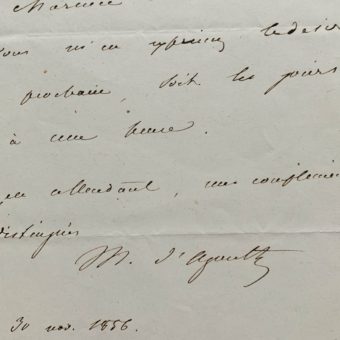 Monsieur
vous m'en exprimez le désir
prochain, soit les jours
à une heure.
en attendant, mes complimen
distingués
M. d'Agoult
30 nov. 1856.